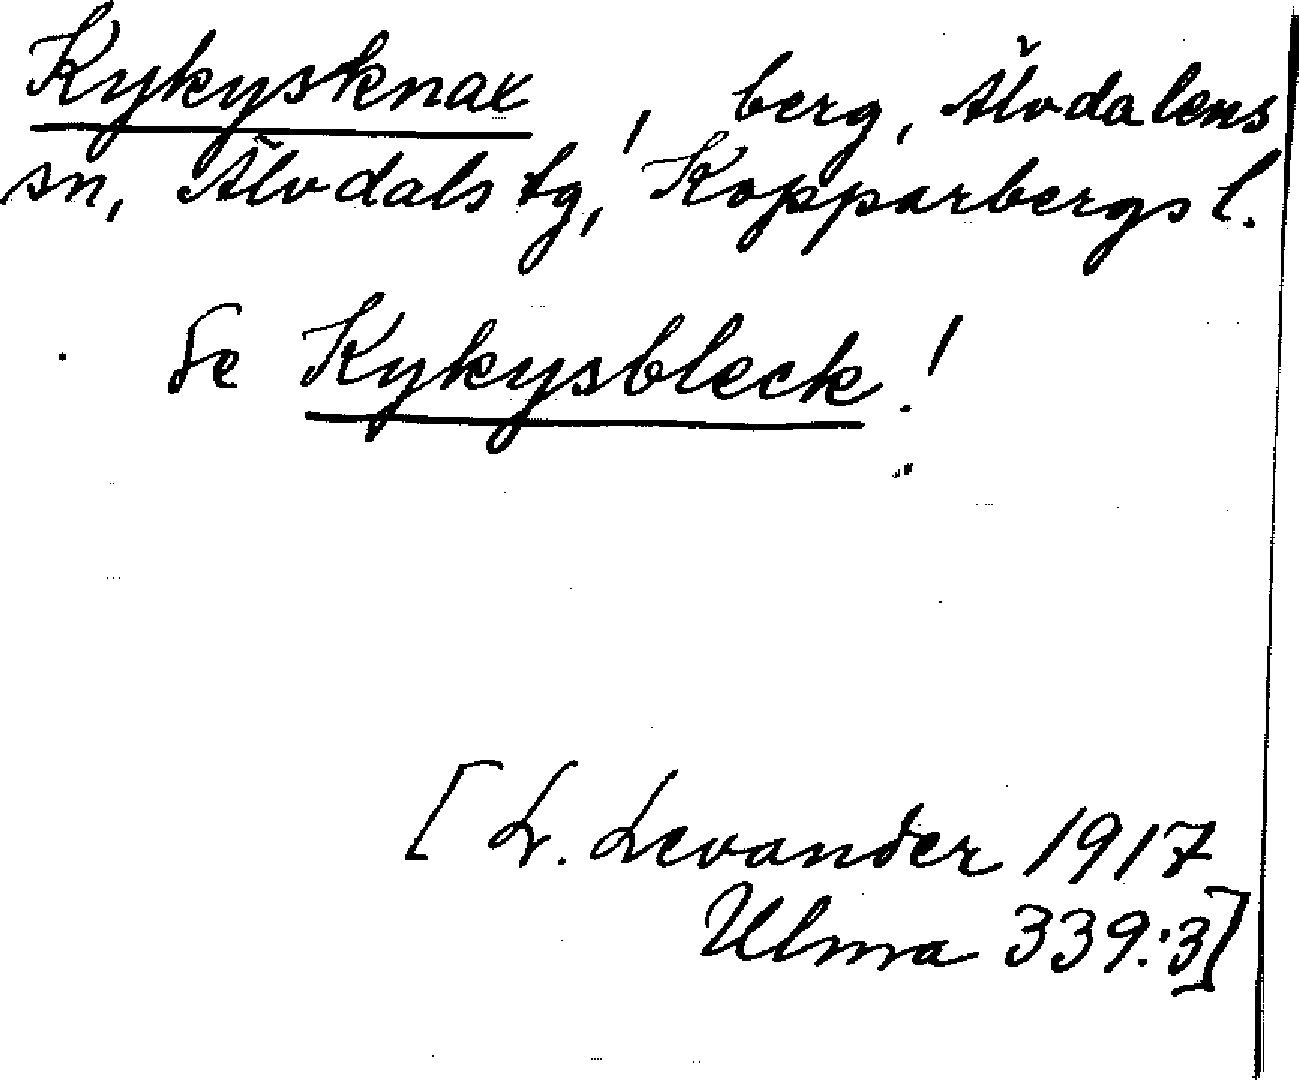 Kykysknax /, berg, Älvdalens
sn, Älvdals tg, Kopparbergs l.
Se Kykysbleck / .
[L. Levander 1917
Ulma 339:3]